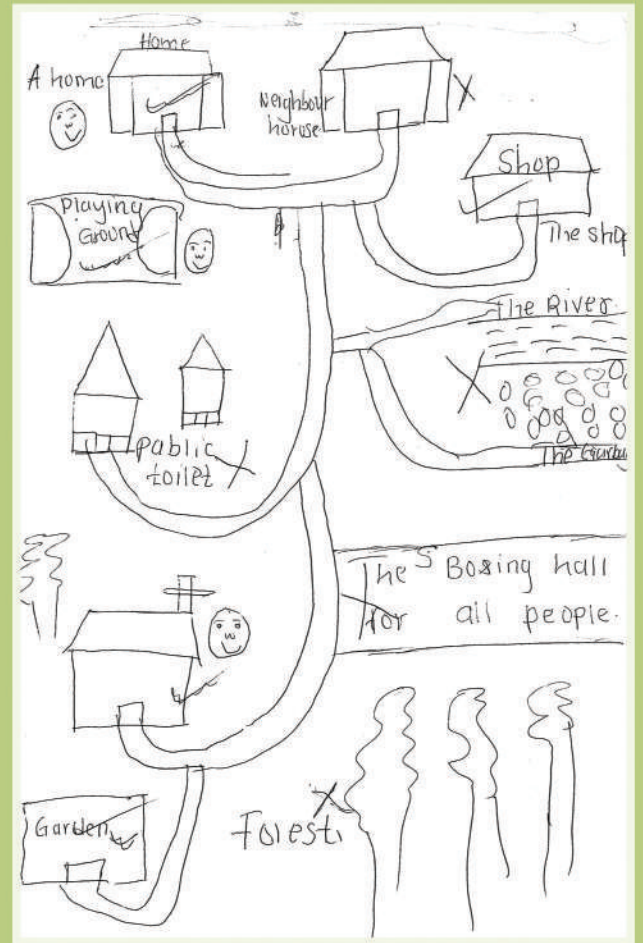 Home
A home
Neighbour
horuse
Shop
The shop
Playing
Ground
The River
public
toilet
The Garba
The S Boxing hall
for all people.
Garden
Forest